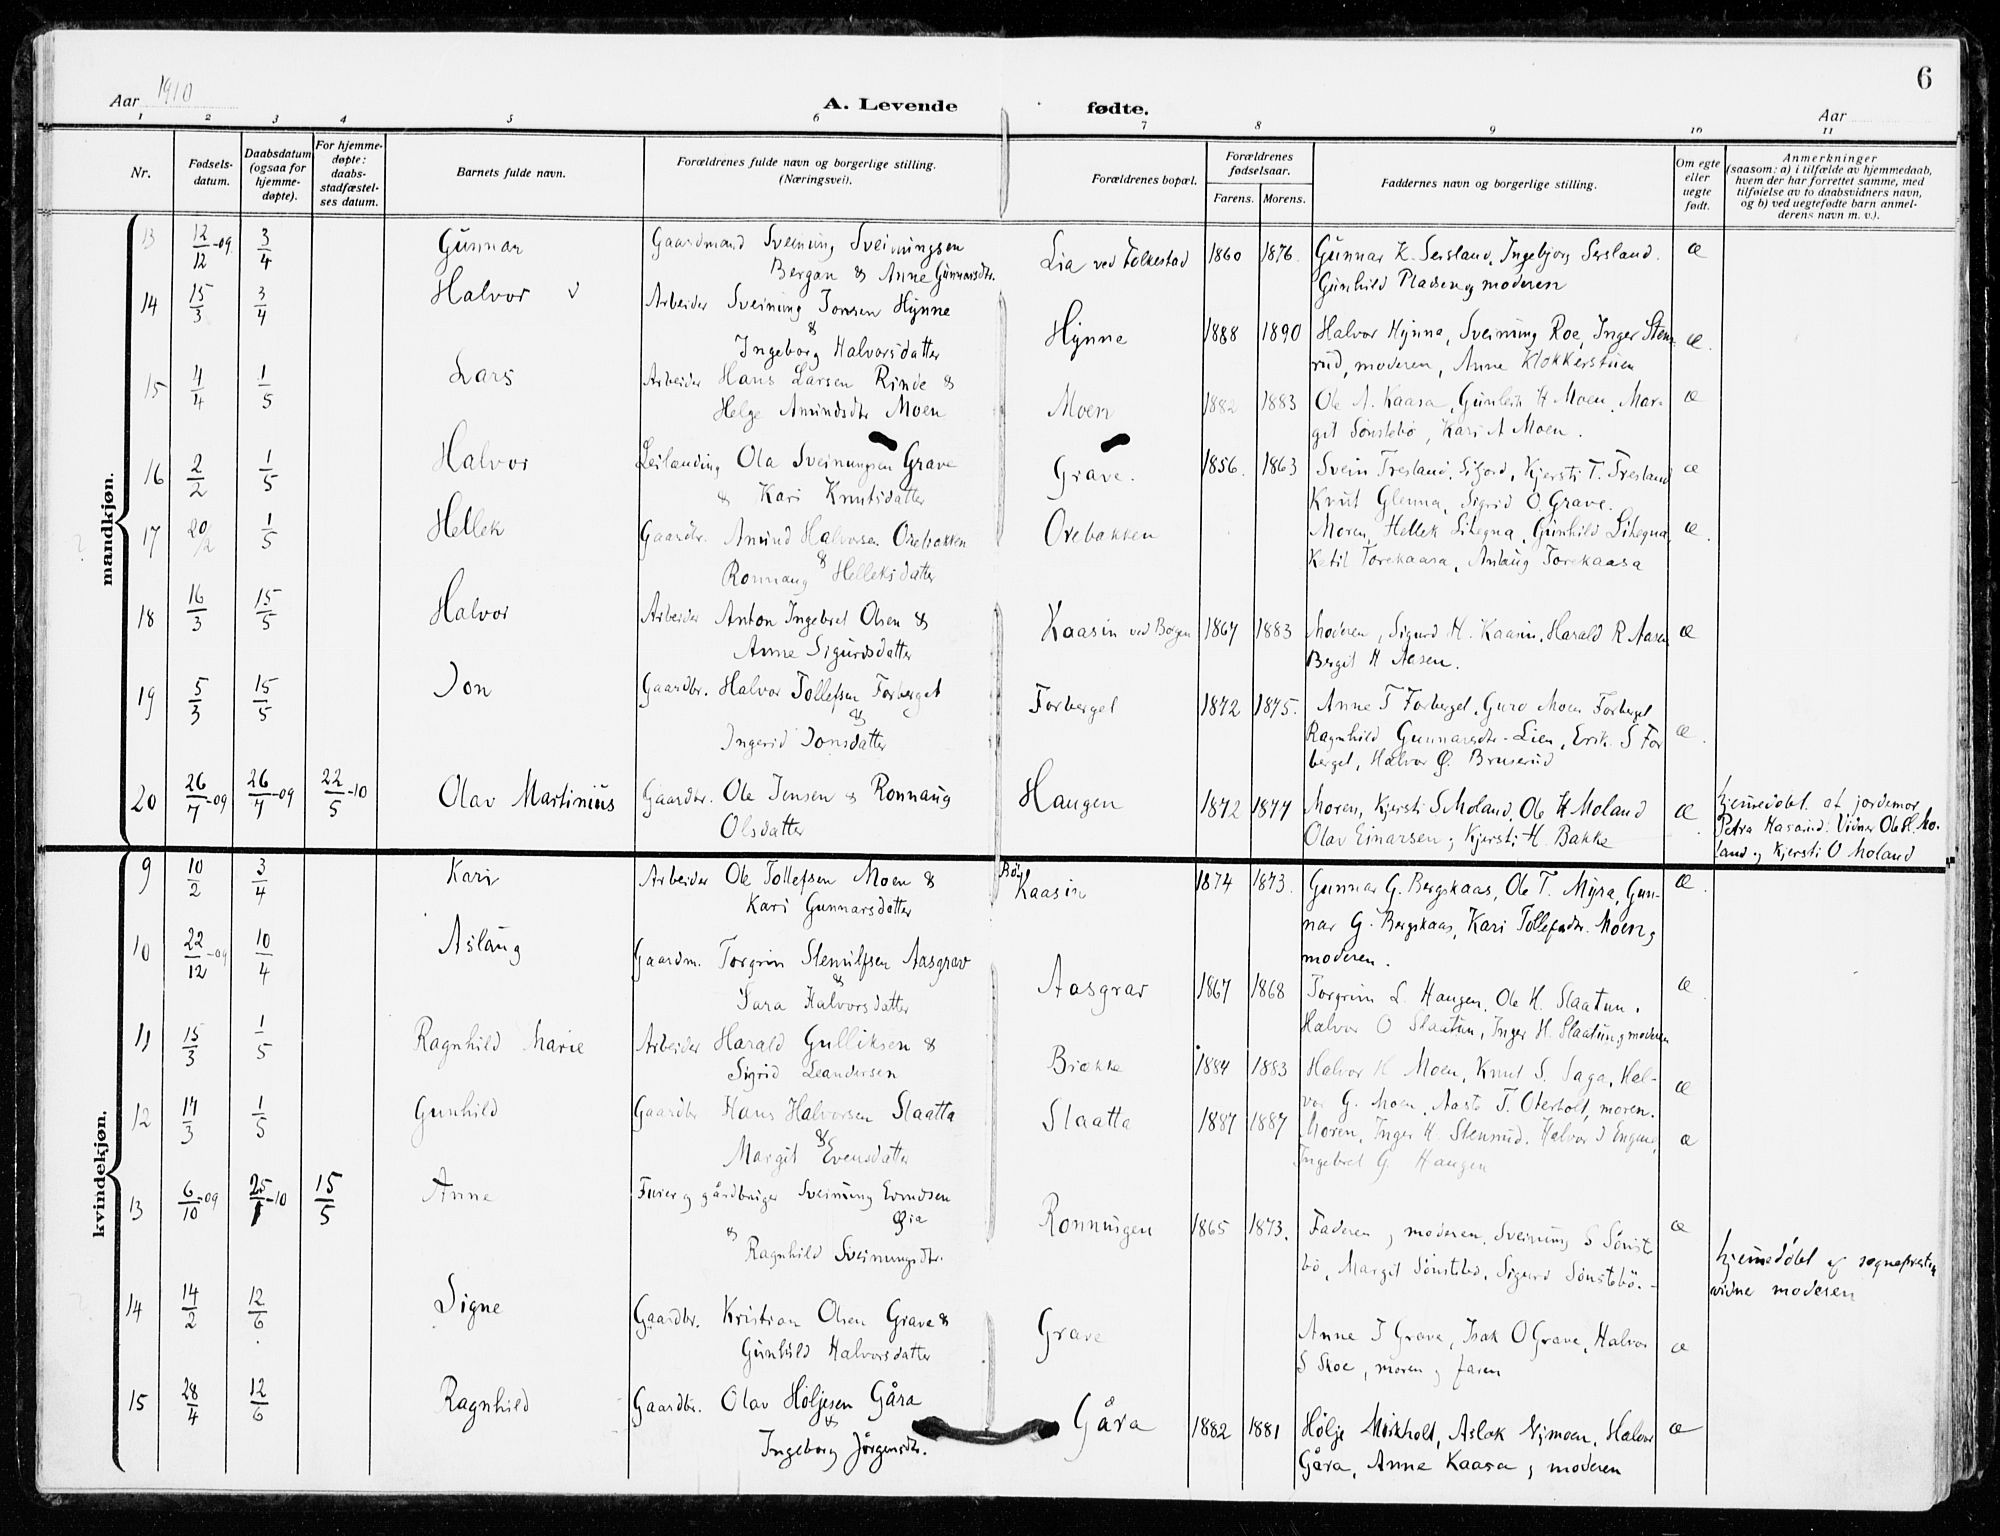 6
Aar 1910
A. Levende fødte.
Aar
1 2 3 4 5 6 7 8 9 10 11
Nr.
Fødsels-
datum.
Daabsdatum
(ogsaa for
hjemme-
døpte).
For hjemme-
døpte:
daabs-
stadfæstel-
ses datum.
Barnets fulde navn.
Forældrenes fulde navn og borgerlige stilling.
(Næringsvei).
Forældrenes bopæl.
Forældrenes
fødselsaar.
Farens. Morens.
Faddernes navn og borgerlige stilling.
Om egte
eller
uegte
født.
Anmerkninger
(saasom: a) i tilfælde av hjemmedaab,
hvem der har forrettet samme, med
tilføielse av to daabsvidners navn,
og b) ved uegtefødte barn anmel-
derens navn m. v.).
mandkjøn.
13 12/12-09 3/4 Gunnar Gaardmand Sveinung Sveinungsen Lia ved Folkestad 1860 1876. Gunnar K. Sersland, Ingebjorg Sersland. æ
Bergan & Anne Gunnarsdtr. Gunhild Pladsen og moderen
14 15/3 3/4 Halvor v Arbeider Sveinung Jonsen Hynne Hynne 1888 1890 Halvor Hynne, Sveinung Roe, Inger Sten- æ.
& Ingeborg Halvorsdatter rud, moderen, Anne Klokkerstuen
15 4/4 1/5 Lars Arbeider Hans Larsen Rinde & Moen 1882 1883 Ole A. Kaasa, Gunleik H Moen, Mar- æ
Helge Amundsdtr Moen git Sönstebö, Kari A Moen.
16 2/2 1/5 Halvor Leilænding Ola Sveinungsen Grave Grave. 1856. 1863 Svein Tresland, Kjersti T. Tresland æ
& Kari Knutsdatter Knut Glenna, Sigrid O. Grave.
17 20/2 1/5 Hellek Gaardbr. Amund Halvorsen Orebakken Orebakken Moren, Hellek Lihegna, Gunhild Lihegna, æ.
& Ronnaug Helleksdatter Ketil Torekaasa, Anlaug Torekaasa
18 16/3 15/5 Halvor Arbeider Anton Ingebret Olsen & Kaasin ved Borgen 1867 1883 Moderen, Sigurd H. Kaasin, Harald R Aasen æ
Anne Sigurdsdatter Bergit H Aasen.
19 5/3 15/5 Jon Gaardbr. Halvor Tollefsen Forberget Forberget 1872 1875. Anne T Forberget, Guro Moen Forberget
& Ingerid Jonsdatter Ragnhild Gunnarsdtr. Lien, Erik S For æ.
berget, Halvor Ø. Bruserud
20 26/7-09 26/7-09 22/5-10 Olav Martinius Gaardbr. Ole Jensen & Ronnaug Haugen 1872 1877 Moren, Kjersti S Moland, Ole H Moland Æ hjemedøbt af jordemor
Olsdatter Olav Einarsen, Kjersti H. Bakke Petra Vidner Ole H. Mo-
land og Kjersti O Moland
kvindekjøn.
9 10/2 3/4 Kari Arbeider Ole Tollefsen Moen & Bö Kaasin 1874 1873. Gunnar G. Bergskaas, Ole T. Myra, Gun- æ.
Kari Gunnarsdatter nar G. Bergskaas, Kari Tollefsdtr. Moen og
moderen.
10 22/12-09 10/4 Aslaug Gaardm. Torgrim Stenulfsen Aasgrav Aasgrav 1867 1868 Torgrim L. Haugen, Ole H. Slaatun, æ
& Sara Halvorsdatter Halvor O Slaatun, Inger H. Slaatun og moderen
11 15/3 1/5 Ragnhild Marie Arbeider Harald Gulliksen & Brække 1884 1883 Halvor H Moen, Knut S. Saga, Hal- æ
Sigrid Leandersen vor G. Moen, Aaste T. Oterholt, moren.
12 14/3 1/5 Gunhild Gaardbr Hans Halvorsen Slaatta Slaatta 1887 1887 Moren, Inger H. Stenrud, Halvor J Engene, æ
& Margit Evensdatter Ingebret G. Haugen
13 6/10-09 25/1-10 15/5 Anne gårdbruger Sveinung Evindsen Ronningen 1865 1873. Faderen og moderen, Sveinung S Sönste æ
Øia & Ragnhild Sveinungsdtr. bö, Margit Sönstebö, Sigurd Sönstebö. hjemedöbt af sognepresten
vidne moderen
14 14/2 12/6 Signe Gaardbr. Kristian Olsen Grave & Grave Anne J Grave, Isak O Grave, Halvor æ
Gunhild Halvorsdatter S Roe, moren og faren
15 28/4 12/6 Ragnhild Gaardbr. Olav Höljesen Gåra Gåra 1882 1881 Hölje Mörkholt, Aslak Nymoen, Halvor æ
& Ingeborg Jörgensdtr. Gåra, Anne Kaasa og moderen